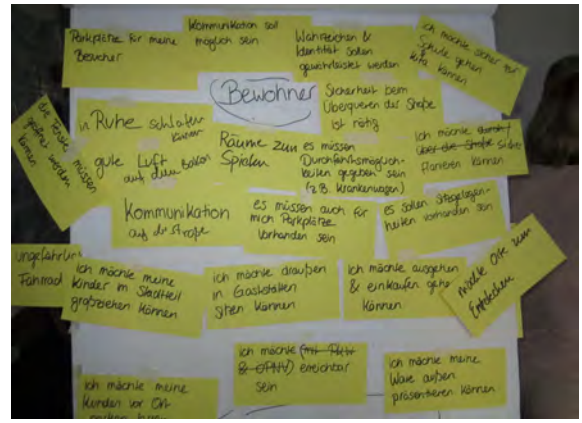 Parkplätze für meine
Besucher
Kommunikation soll
möglich sein
Wahrzeichen &
Identität sollen
gewährleistet werden
ich möchte sicher zur
Schule gehen
Kita können
Bewohner
Sicherheit beim
Überqueren der Straße
ist nötig
die Fenster müssen
geöffnet werden
können
in Ruhe schlafen
können
gute Luft
auf dem Balkon
Räume zum
Spielen
es müssen
Durchfahrtsmöglich-
keiten gegeben sein
(z.B. Krankenwagen)
ich möchte durch /
über die Straße sicher
flanieren können
Kommunikation
auf der Straße
es müssen auch für
mich Parkplätze
vorhanden sein
es sollen Sitzgelegen-
heiten vorhanden sein
Fahrrad
ich möchte meine
Kinder im Stadtteil
großziehen können
ich möchte draußen
in Gaststätten
sitzen können
ich möchte ausgehen
& einkaufen gehen
können
möchte Orte zum
Entdecken
ich möchte (mit PKW
& ÖPNV) erreichbar
sein
ich möchte meine
Kunden vor Ort
ich möchte meine
Ware außen
präsentieren können